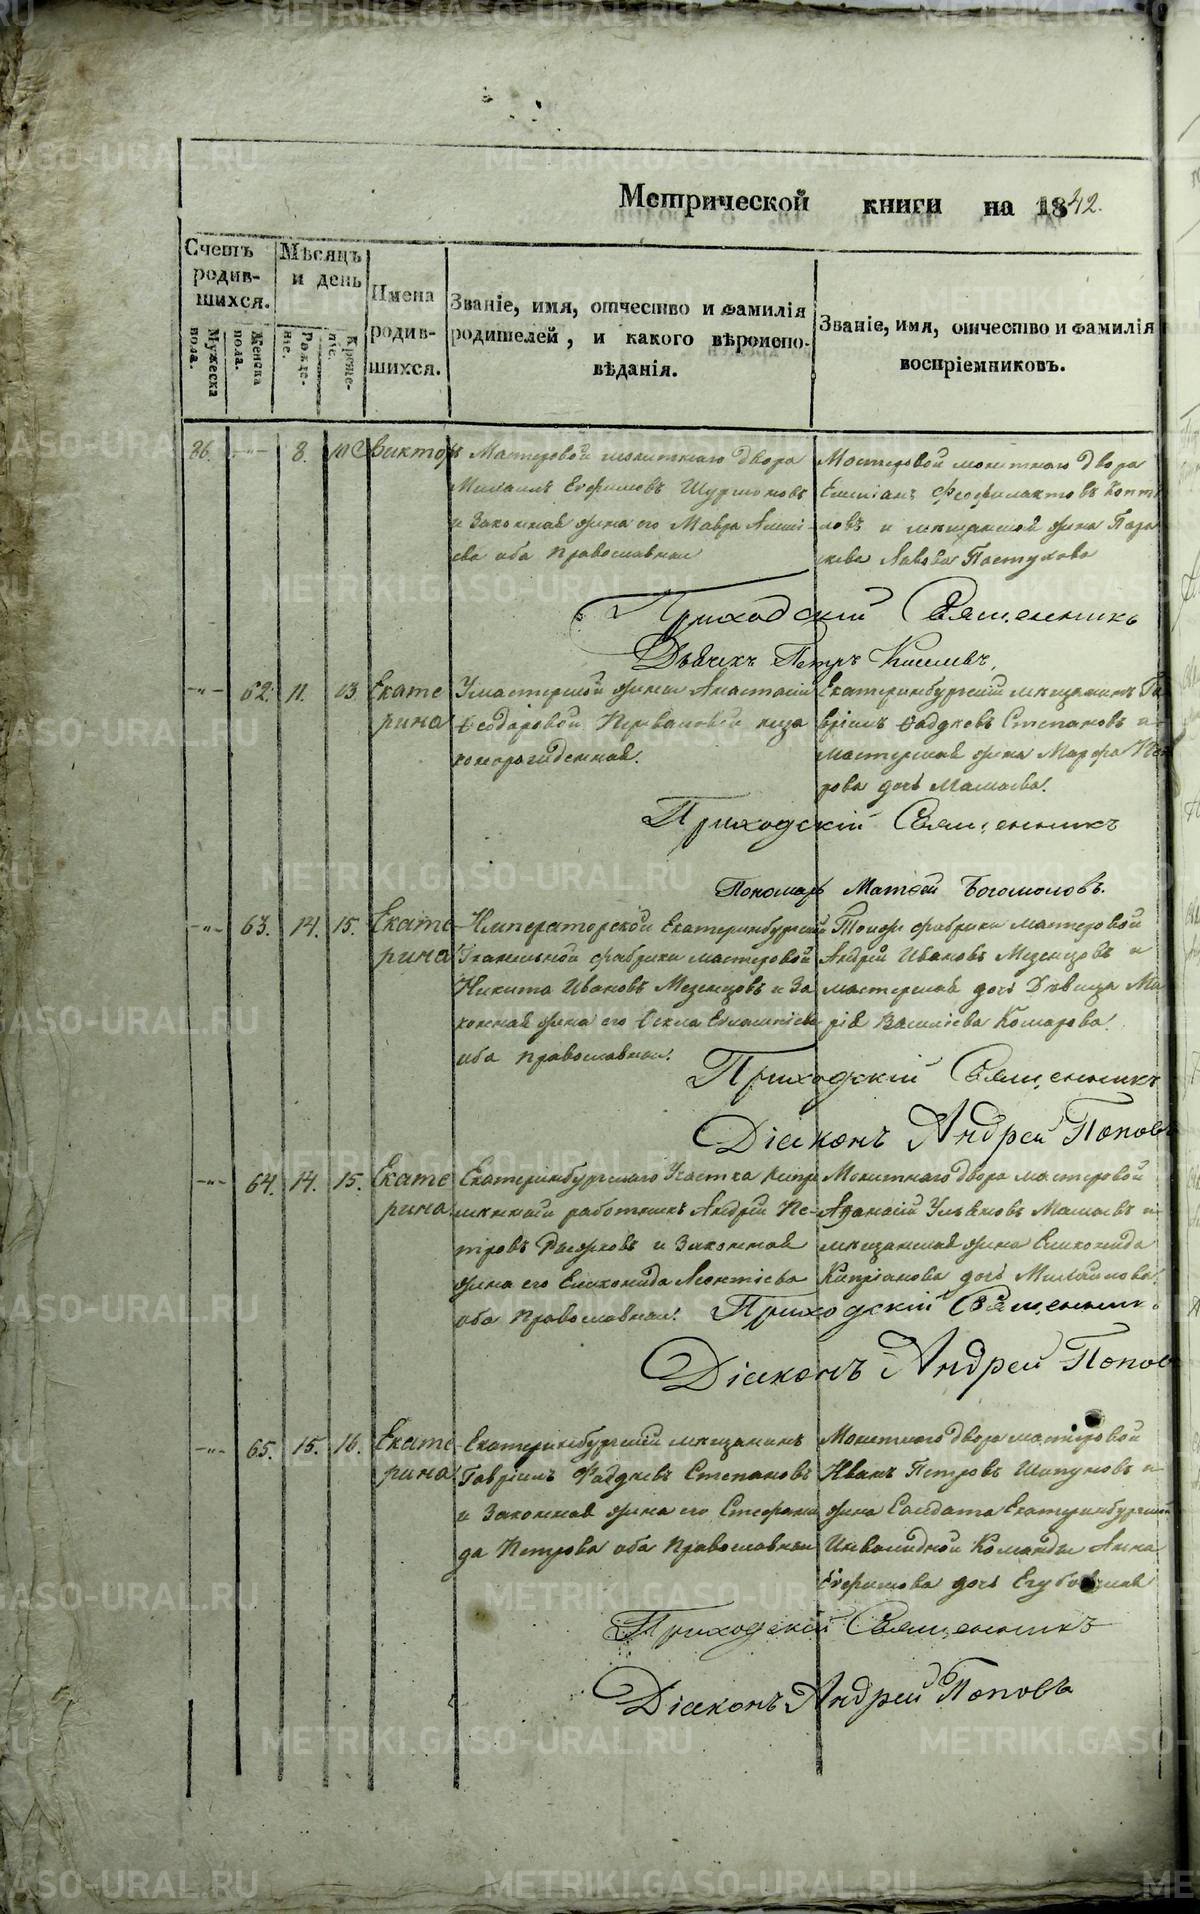 Метрической книги на 1842.
Счетъ родив-шихся.
Мужеска пола.
Женска пола.
Мѣсяцъ и день
Рожде-ніе.
Креще-ніе.
Имена родив-шихся.
Званіе, имя, отчество и фамилія
родителей, и какого вѣроиспо-
вѣданія.
Званіе, имя, отчество и фамилія
воспріемниковъ.
86. 8. Викторъ
Мастеровой монетнаго двора
Михаилъ Евфимовъ
и Законная жена его Мавра
оба Православнаи
Мастеровой монетнаго двора
и мѣщанской жена Пара
скева Львова Пастухова
Приходскій Священникъ
Дьячекъ Петръ
62. 11. 13 Екате
рина
Умастерской жены Анастасіи
Ѳеодоровой неза
коннорожденная.
Екатеринбургскій мѣщанинъ Га
вріилъ Ѳадѣевъ Степановъ и
мастерская жена Марфа
рова дочь Мамаева.
Приходскій Священникъ
Пономарь Матѳей Богомоловъ.
63. 14. 15. Екате
рина
Императорской Екатеринбургской
Гранильной фабрики мастеровой
Никита Ивановъ Мезенцовъ и За
конная жена его Ѳекла
оба Православнаи.
Тойже фабрики мастеровой
Андрей Ивановъ Мезенцовъ и
мастерская дочь Дѣвица Ма
рія Василіева Комарова.
Приходскій Священникъ
Діаконъ Андрей Поповъ
64. 14. 15. Екате
рина
Екатеринбургскаго Участка
работникъ Андрей Пе-
тровъ и Законная
жена его Еликонида Леонтіева
оба Православнаи.
Монетнаго двора мастеровой
Афанасій Ульяновъ Мамаевъ и
мѣщанская жена Еликонида
Кипріанова дочь Михайлова.
Приходскій Священникъ
Діаконъ Андрей Попов
65. 15. 16. Екате
рина
Екатеринбургскій мѣщанинъ
Гавріилъ Фадѣевъ Степановъ
и Законная жена его Стефани
да Петрова оба Православнаи
Монетнаго двора мастеровой
Иванъ Петровъ Шапуновъ и
жена Солдата Екатеринбургской
Инвалидной Команды Анна
Евфимова дочь
Приходскій Священникъ
Діаконъ Андрей Поповъ
METRIKI.GASO-URAL.RU